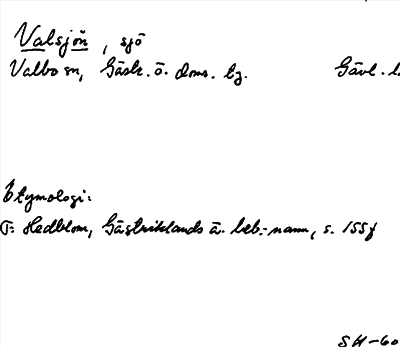 Valsjön, sjö
Valbo sn, Gästr. ö. doms. tg. Gävl. l
Etymologi:
F. Hedblom, Gästriklands ä. beb.-namn, s. 155f
SH-60